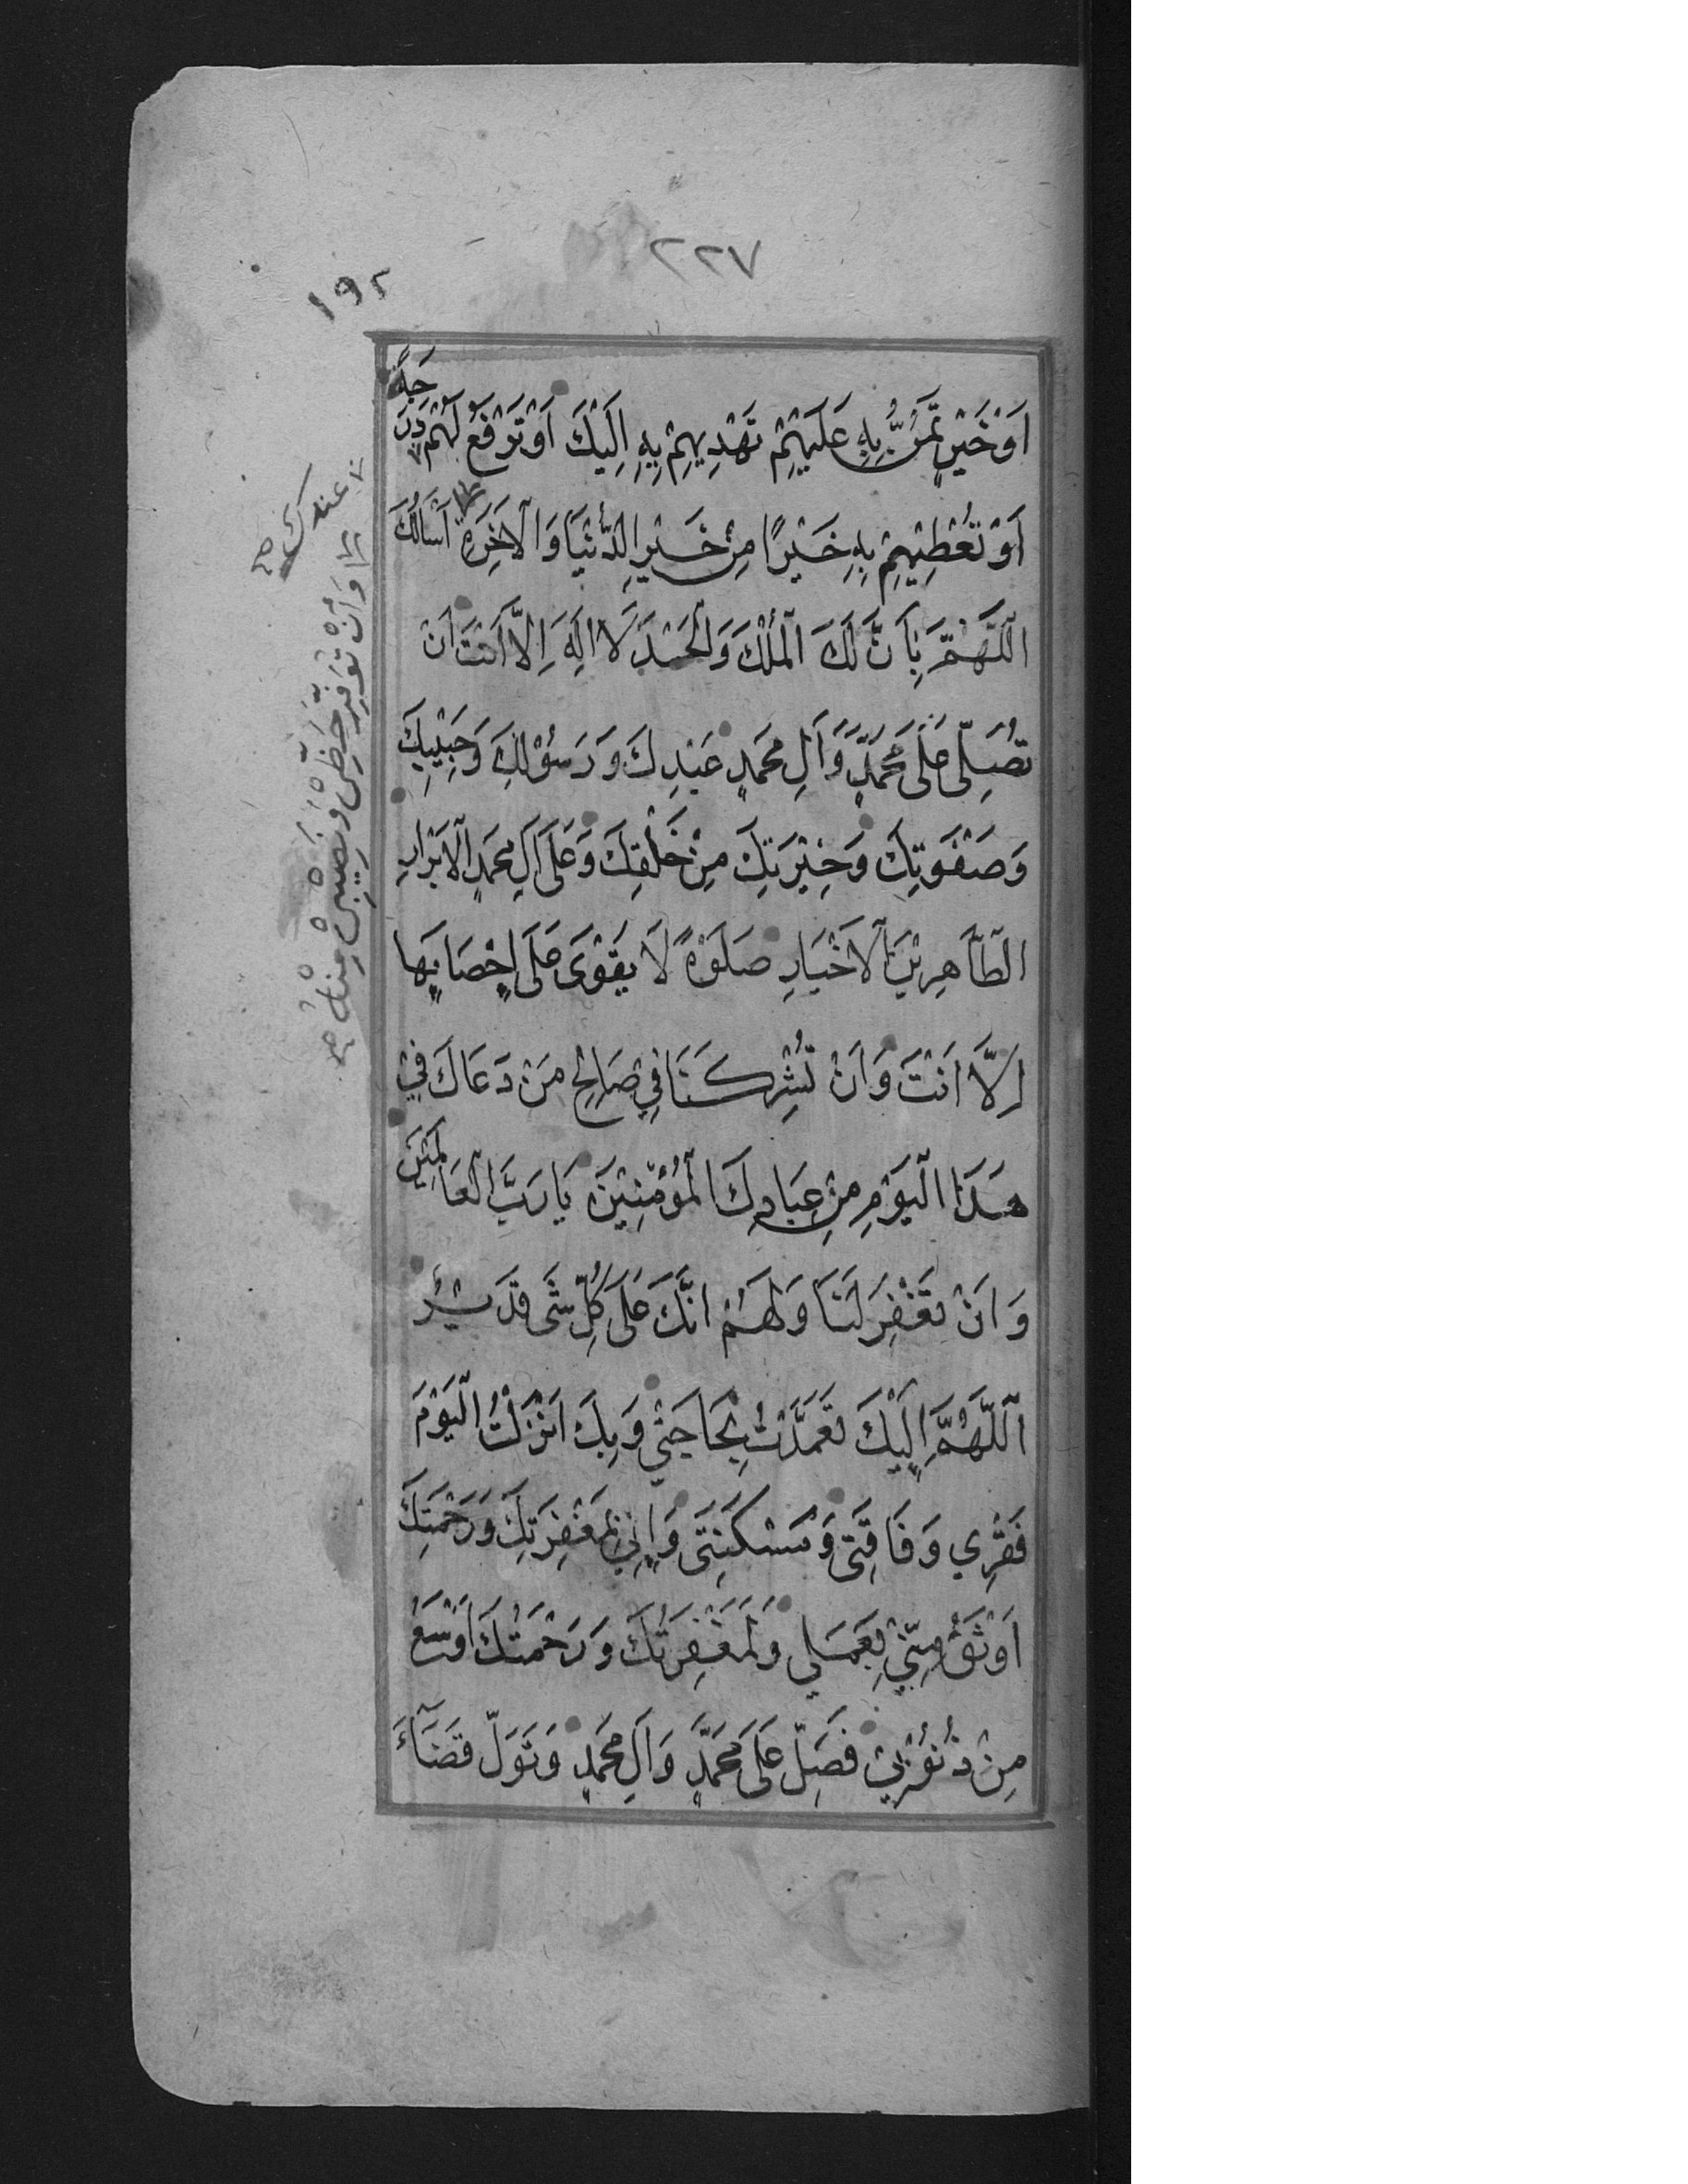 ٢٢٧
١٩٢
اَوْ خَيْرٍ تَمُنُّ بِهِ عَلَيْهِمْ تَهْدِيهِمْ بِهِ اِلَيْكَ اَوْ تَرْفَعُ لَهُمْ دَرَجَةً
اَوْ تُعْطِيْهِمْ بِهِ خَيْرًا مِنْ خَيْرِ الدُّنْيَا وَالْاٰخِرَةِ اَسْاَلُكَ
اَللّٰهُمَّ بِاَنَّ لَكَ الْمُلْكَ وَالْحَمْدَ لَا اِلٰهَ اِلَّا اَنْتَ اَنْ
تُصَلِّىَ عَلٰى مُحَمَّدٍ وَاٰلِ مُحَمَّدٍ عَبْدِكَ وَرَسُوْلِكَ وَحَبِيْبِكَ
وَصَفْوَتِكَ وَخِيْرَتِكَ مِنْ خَلْقِكَ وَعَلٰى اٰلِ مُحَمَّدٍ الْاَبْرَارِ
الطَّاهِرِيْنَ الْاَخْيَارِ صَلٰوةً لَا يَقْوٰى عَلٰى اِحْصَائِهَا
اِلَّا اَنْتَ وَاَنْ تُشْرِكَنَا فِيْ صَالِحِ مَنْ دَعَاكَ فِيْ
هٰذَا الْيَوْمِ مِنْ عِبَادِكَ الْمُؤْمِنِيْنَ يَا رَبَّ الْعَالَمِيْنَ
وَاَنْ تَغْفِرَ لَنَا وَلَهُمْ اِنَّكَ عَلٰى كُلِّ شَىْ قَدِيْرٌ
اَللّٰهُمَّ اِلَيْكَ تَعَمَّدْتُ بِحَاجَتِيْ وَبِكَ اَنْزَلْتُ الْيَوْمَ
فَقْرِي وَفَاقَتِى وَمَسْكَنَتِى وَاِنِّي بِمَغْفِرَتِكَ وَرَحْمَتِكَ
اَوْثَقُ مِنِّيْ بِعَمَلِي وَلَمَغْفِرَتُكَ وَرَحْمَتُكَ اَوْسَعُ
مِنْ ذُنُوْبِيْ فَصَلِّ عَلٰى مُحَمَّدٍ وَاٰلِ مُحَمَّدٍ وَتَوَلَّ قَضَآءَ
عندك صح
وَاَنْ تُوَفِّرَ حَظِّىْ وَنَصِيْبِىْ مِنْهُ صح